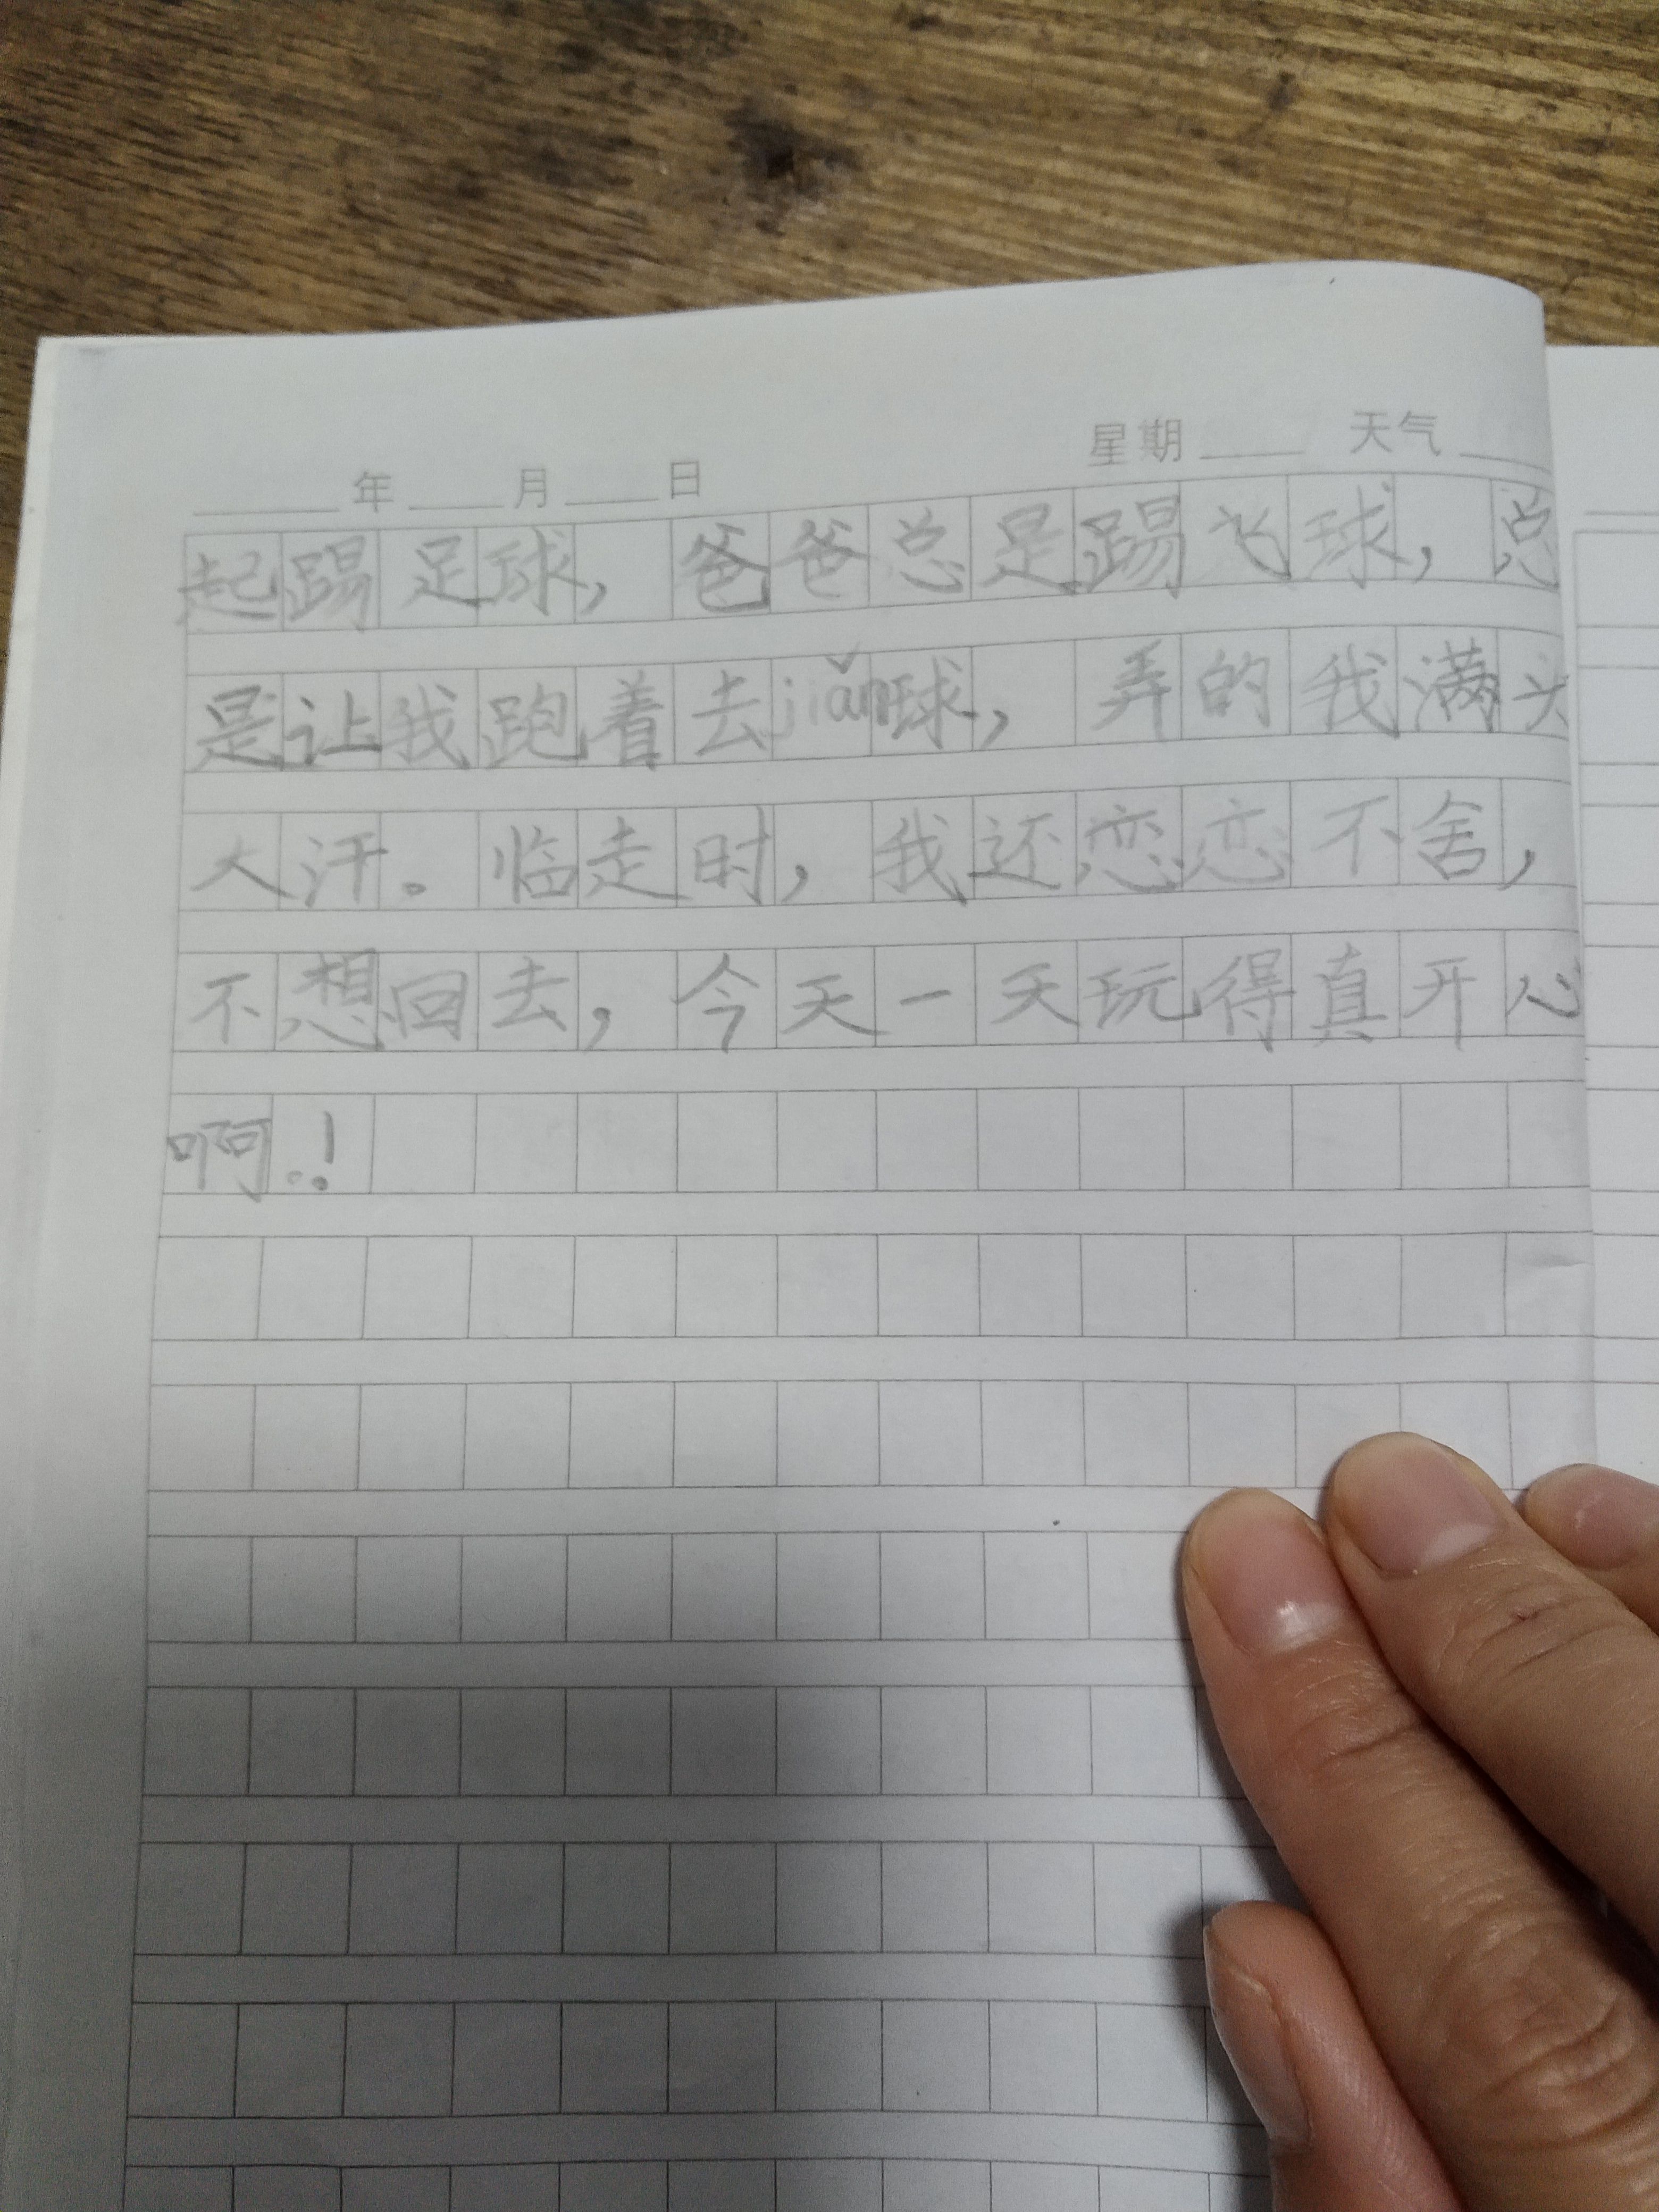 ____年____月____日 星期____ 天气____
起踢足球，爸爸总是踢飞球，总
是让我跑着去jiǎn球，弄的我满头
大汗。临走时，我还恋恋不舍，
不想回去，今天一天玩得真开心
啊.！